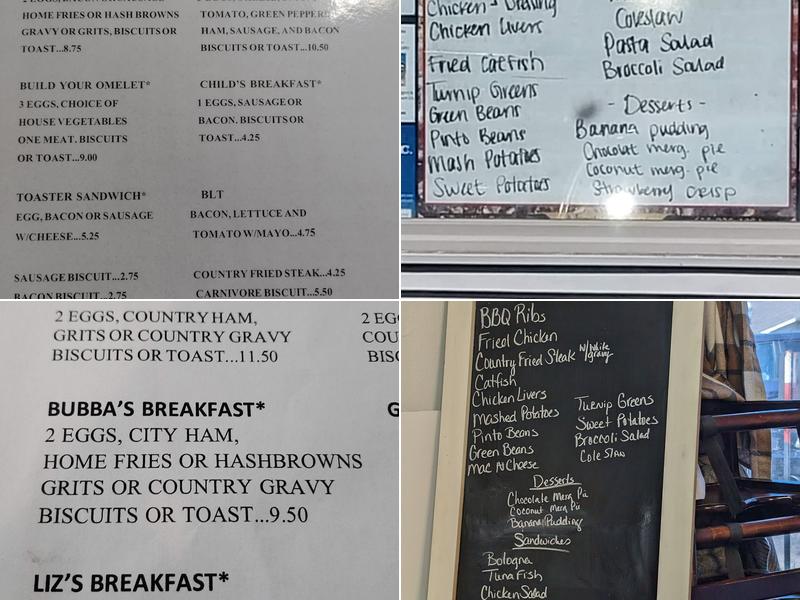 HOME FRIES OR HASH BROWNS
GRAVY OR GRITS, BISCUITS OR
TOAST...8.75
TOMATO, GREEN PEPPERS
HAM, SAUSAGE, AND BACON
BISCUITS OR TOAST...10.50
BUILD YOUR OMELET*
3 EGGS, CHOICE OF
HOUSE VEGETABLES
ONE MEAT. BISCUITS
OR TOAST...9.00
CHILD'S BREAKFAST*
1 EGGS, SAUSAGE OR
BACON. BISCUITS OR
TOAST...4.25
TOASTER SANDWICH*
EGG, BACON OR SAUSAGE
W/CHEESE...5.25
BLT
BACON, LETTUCE AND
TOMATO W/MAYO...4.75
SAUSAGE BISCUIT...2.75
BACON BISCUIT...2.75
COUNTRY FRIED STEAK...4.25
CARNIVORE BISCUIT...5.50
Chicken & Dressing
Chicken Livers
Fried Catfish
Turnip Greens
Green Beans
Pinto Beans
Mash Potatoes
Sweet Potatoes
Coleslaw
Pasta Salad
Broccoli Salad
- Desserts -
Banana pudding
Chocolat merg. pie
Coconut merg. pie
Strawberry crisp
2 EGGS, COUNTRY HAM,
GRITS OR COUNTRY GRAVY
BISCUITS OR TOAST...11.50
2 EG
COU
BISC
BUBBA'S BREAKFAST*
G
2 EGGS, CITY HAM,
HOME FRIES OR HASHBROWNS
GRITS OR COUNTRY GRAVY
BISCUITS OR TOAST...9.50
LIZ'S BREAKFAST*
BBQ Ribs
Fried Chicken
Country Fried Steak w/white gravy
Catfish
Chicken Livers
Mashed Potatoes
Pinto Beans
Green Beans
Mac N Cheese
Turnip Greens
Sweet Potatoes
Broccoli Salad
Cole Slaw
Desserts
Chocolate Merg Pie
Coconut Merg Pie
Banana Pudding
Sandwiches
Bologna
Tuna Fish
Chicken Salad